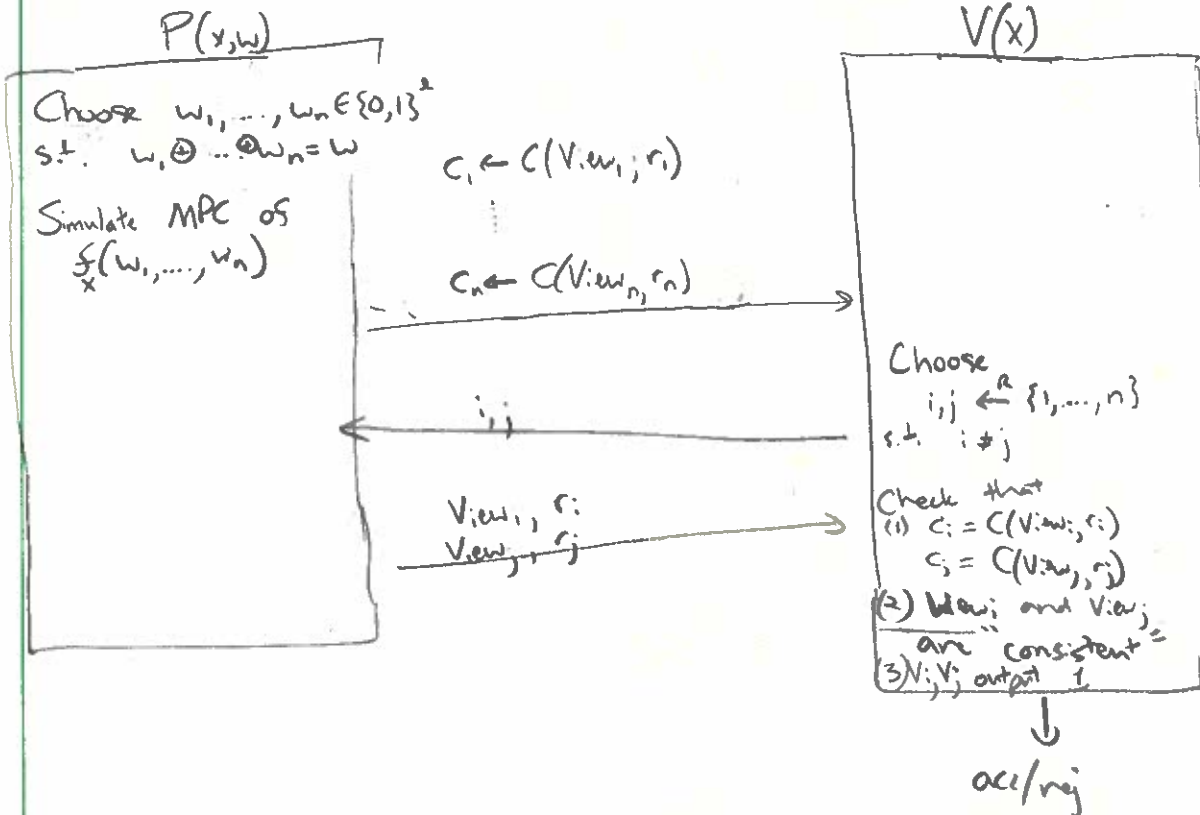 P(x,w)
Choose w₁, ..., wₙ ∈ {0,1}^ℓ
s.t. w₁ ⊕ ... ⊕ wₙ = w
Simulate MPC of
fₓ(w₁, ...., wₙ)
c₁ ← C(View₁; r₁)
⋮
cₙ ← C(Viewₙ, rₙ)
i, j
Viewᵢ, rᵢ
Viewⱼ, rⱼ
V(x)
Choose
i,j ←ᴿ {1,...,n}
s.t. i ≠ j
Check that
(1) cᵢ = C(Viewᵢ, rᵢ)
cⱼ = C(Viewⱼ, rⱼ)
(2) Viewᵢ and Viewⱼ
are "consistent"
(3) Vᵢ, Vⱼ output 1
acc/rej